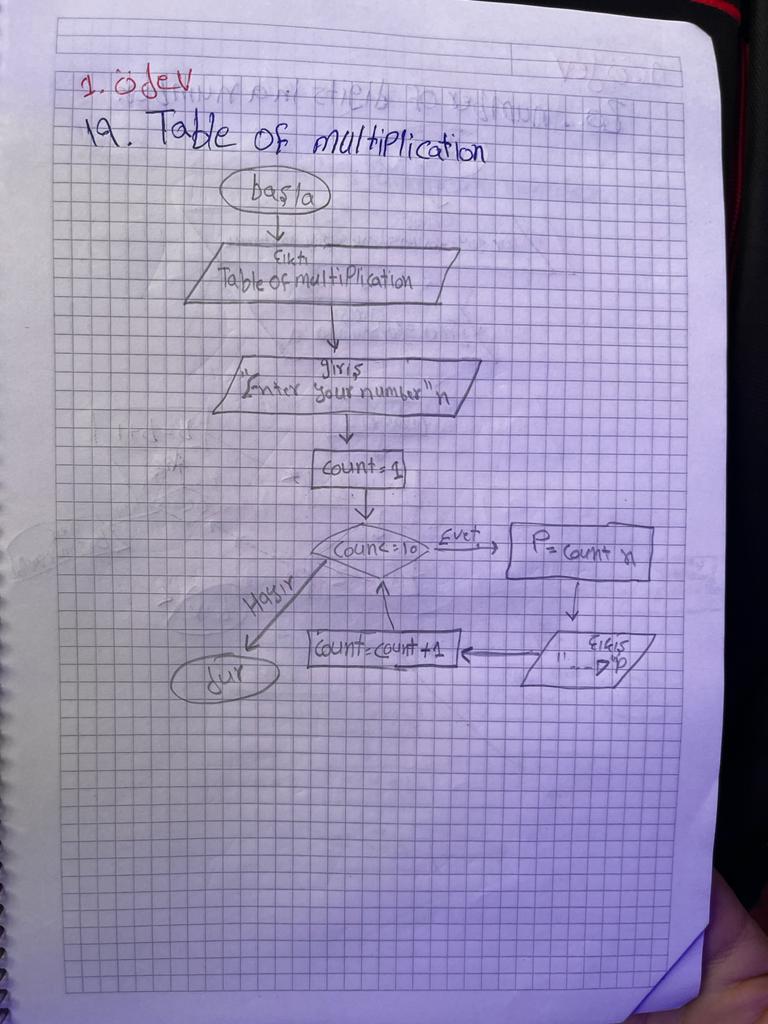 1. ödev
19. Table of multiplication
başla
Çıktı
Table of multiplication
giriş
"Enter your number" n
count=1
coun<=10
Evet
P=count n
Hayır
count=count+1
dur